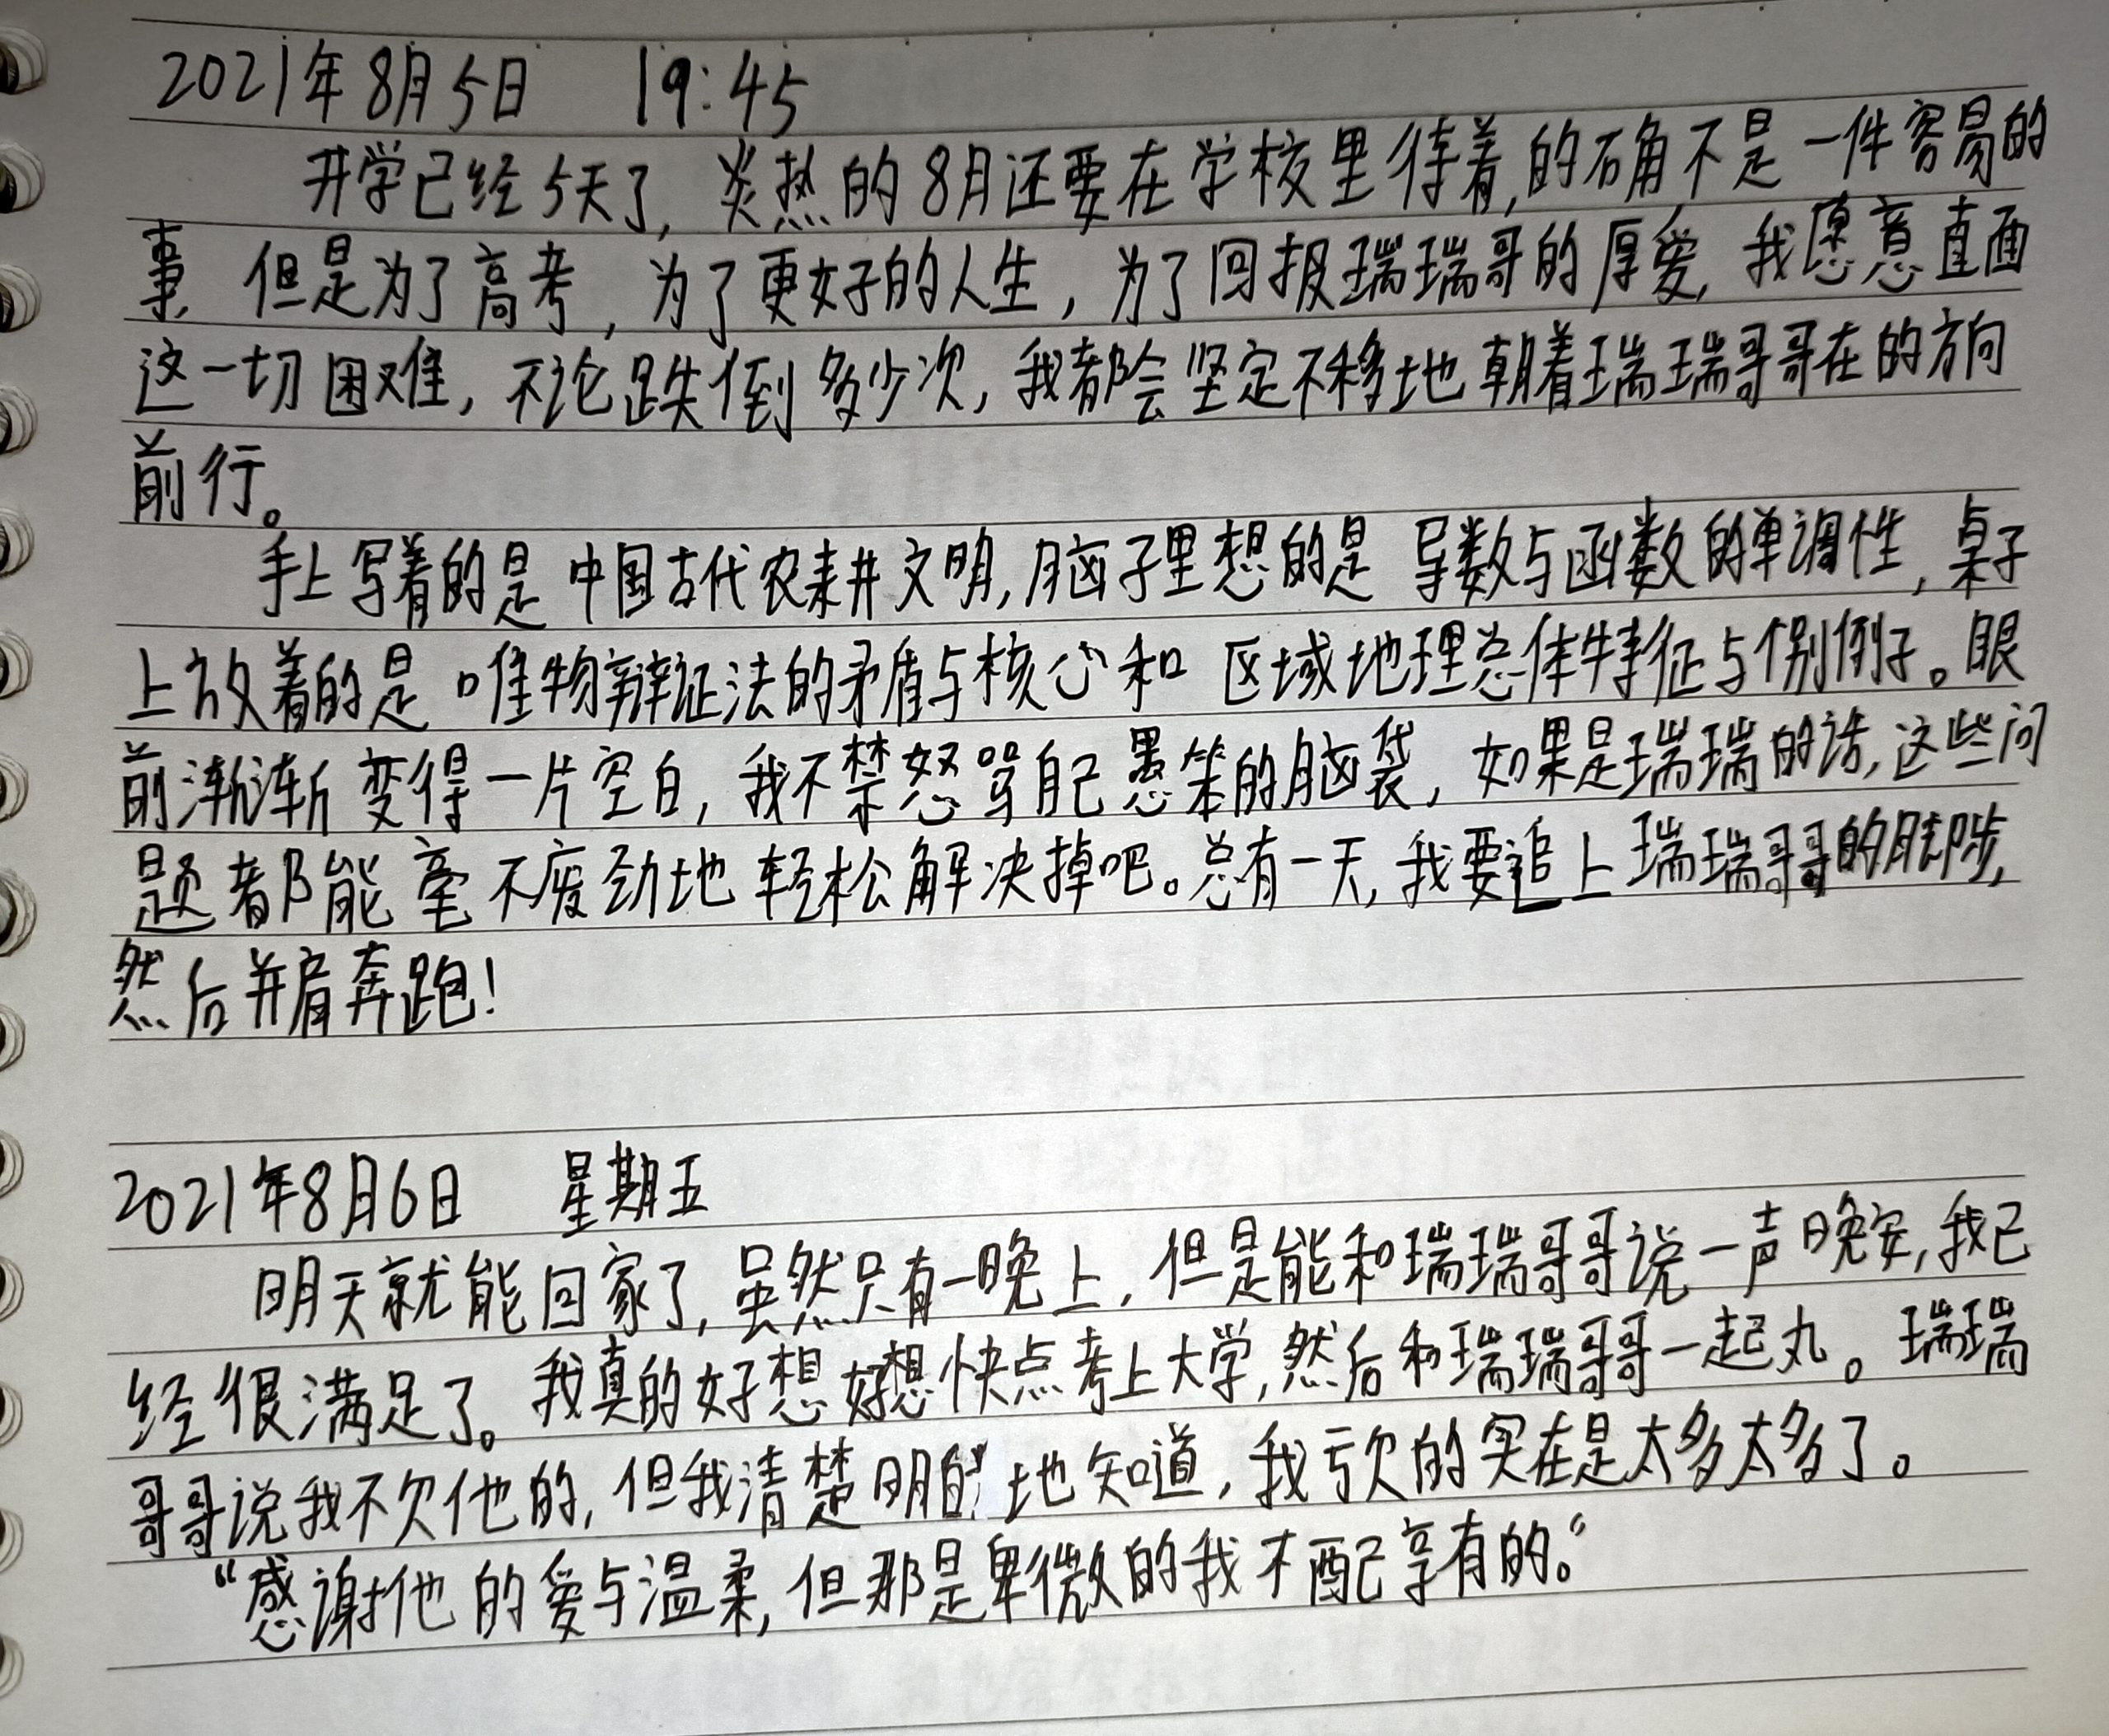 2021年8月5日 19:45
开学已经5天了，炎热的8月还要在学校里待着，的确不是一件容易的
事，但是为了高考，为了更好的人生，为了回报瑞瑞哥的厚爱，我愿意直面
这一切困难，不论跌倒多少次，我都会坚定不移地朝着瑞瑞哥哥在的方向
前行。
手上写着的是中国古代农耕文明，脑子里想的是导数与函数的单调性，桌子
上放着的是唯物辩证法的矛盾与核心和区域地理总体特征与个别例子。眼
前渐渐变得一片空白，我不禁怒骂自己愚笨的脑袋，如果是瑞瑞的话，这些问
题都能毫不废劲地轻松解决掉吧。总有一天，我要追上瑞瑞哥哥的脚步，
然后并肩奔跑！
2021年8月6日 星期五
明天就能回家了，虽然只有一晚上，但是能和瑞瑞哥哥说一声晚安，我已
经很满足了。我真的好想好想快点考上大学，然后和瑞瑞哥哥一起丸。瑞瑞
哥哥说我不欠他的，但我清楚明白地知道，我亏欠的实在是太多太多了。
“感谢他的爱与温柔，但那是卑微的我不配享有的。”